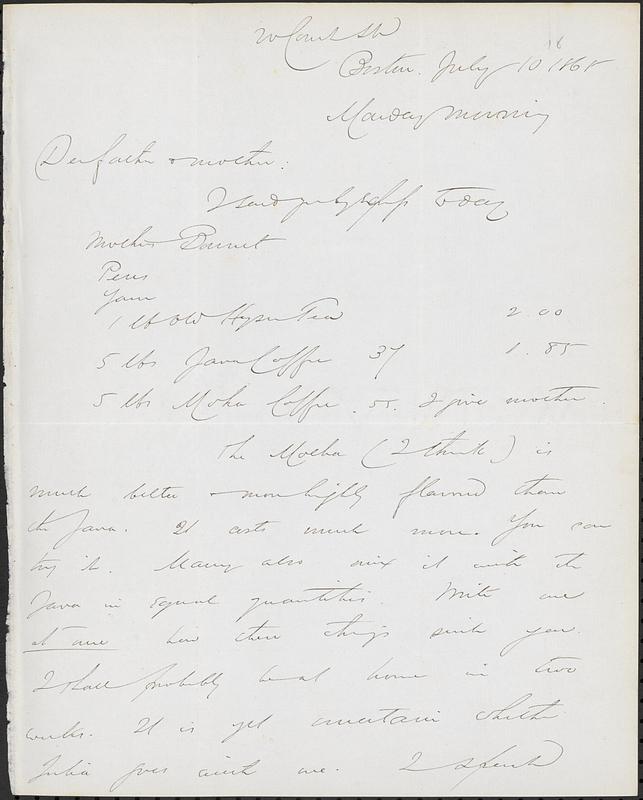 20 Court St
Boston. July 10 1868
18
Monday morning
Dear father & mother.
I send you by exp today
Mothers Bonnet
Pens
Yarn
1 lb old Hyson Tea 2.00
5 lbs Java Coffee 37 1.85
5 lbs Moka Coffee . 55. I give mother.
The Mocha (I think) is
much better & more highly flavored than
the Java. It costs much more. You can
try it. Many also mix it with the
Java in equal quantities. Write me
at once how these things suit you.
I shall probably be at home in two
weeks. It is yet uncertain whether
Julia goes with me. I spend